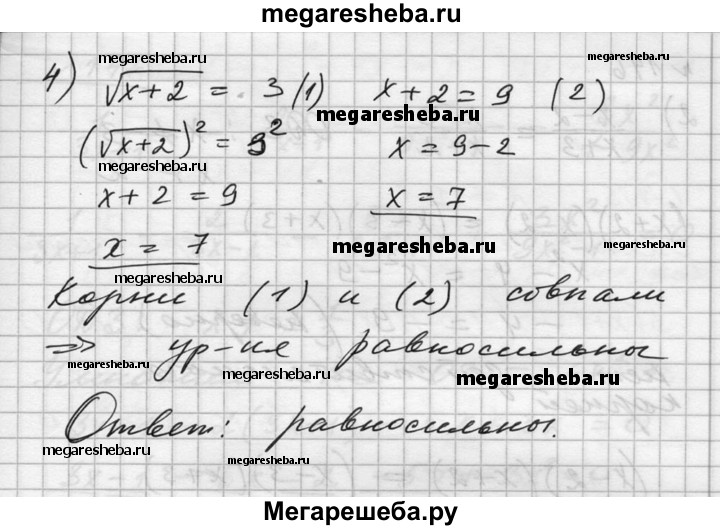 megaresheba.ru
4) √x+2 = 3 (1) x+2=9 (2)
megaresheba.ru
megaresheba.ru
megaresheba.ru
(√x+2)² = 3² x = 9-2
megaresheba.ru
x+2 = 9 x = 7
x = 7 megaresheba.ru
megaresheba.ru
Корни (1) и (2) совпали
⇒ ур-ия равносильны
megaresheba.ru
megaresheba.ru
megaresheba.ru
Ответ: равносильны.
megaresheba.ru
megaresheba.ru
Мегарешеба.ру